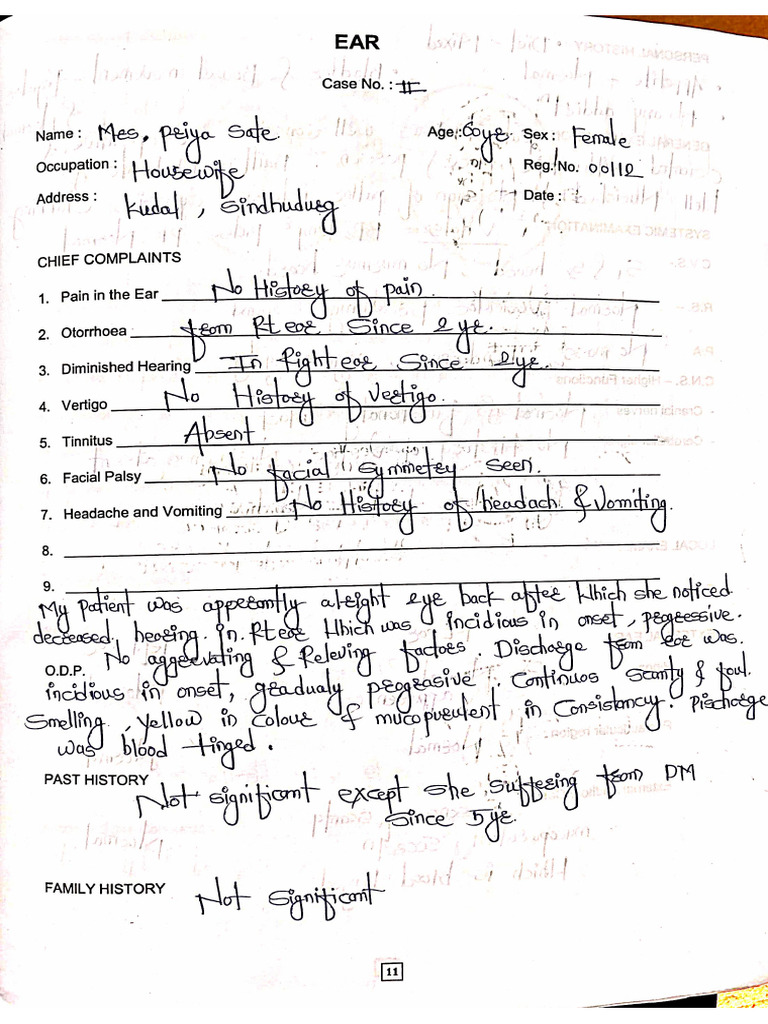 EAR
Case No. : II
Name : Mrs. Priya Sate. Age : 60yr. Sex : Female
Occupation : Housewife Reg. No. 00112
Address : Kudal, Sindhudurg Date :
CHIEF COMPLAINTS
1. Pain in the Ear No History of pain.
2. Otorrhoea from Rt ear Since 2yr.
3. Diminished Hearing In Right ear Since 2yr.
4. Vertigo No History of Vertigo.
5. Tinnitus Absent.
6. Facial Palsy No facial symmetry seen.
7. Headache and Vomiting No History of headach & Vomiting.
8.
9.
My Patient was apperantly alright 2yr back after Which she noticed
decreased hearing. in. Rt ear Which was incidious in onset, progressive.
O.D.P. No aggrevating & Releving factors. Discharge from ear was.
incidious in onset, gradualy prograsive. Continuos Scanty & foul.
Smelling, Yellow in Colour & mucopurulent in Consistancy. Discharge
was blood tinged.
PAST HISTORY
Not significant except she suffering from DM
Since 5yr.
FAMILY HISTORY Not Significant
11